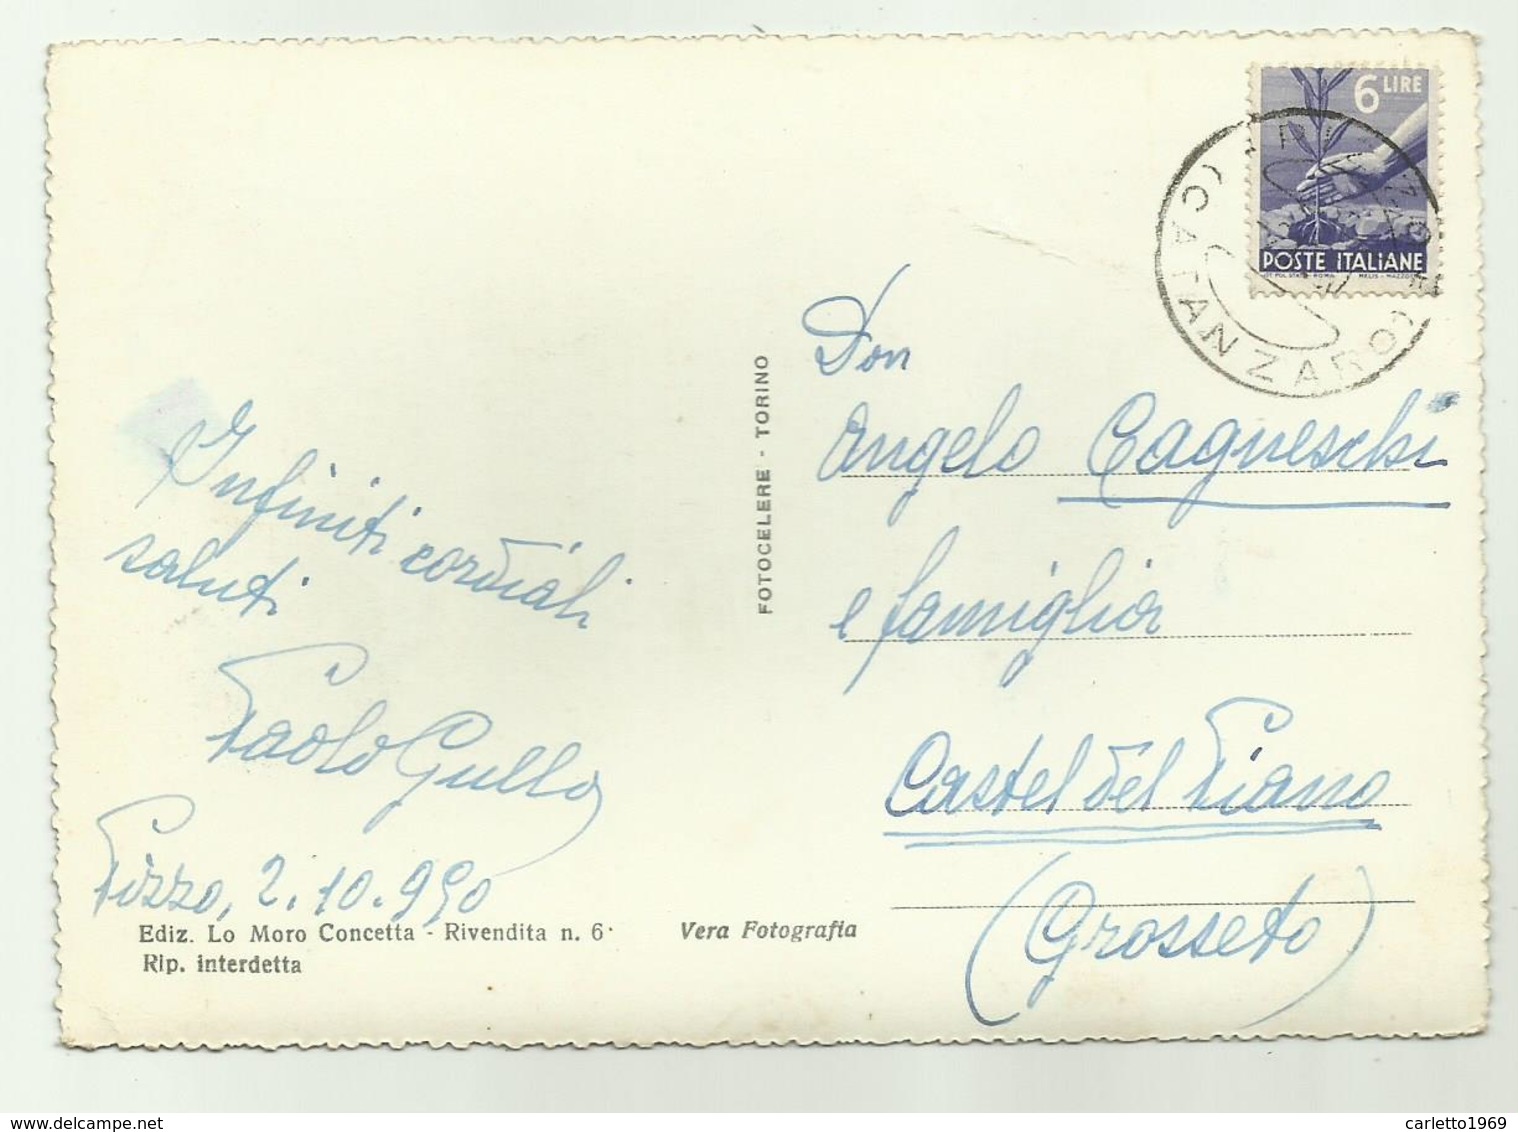 6 LIRE
POSTE ITALIANE
PIZZO
(CATANZARO)
Infiniti cordiali
saluti
Paolo Gullo
Pizzo, 2.10.950
Ediz. Lo Moro Concetta - Rivendita n. 6
Rip. interdetta
Vera Fotografia
FOTOCELERE - TORINO
Don
Angelo Cagneschi
e famiglia
Castel del Piano
(Grosseto)
delcampe.net
carletto1969